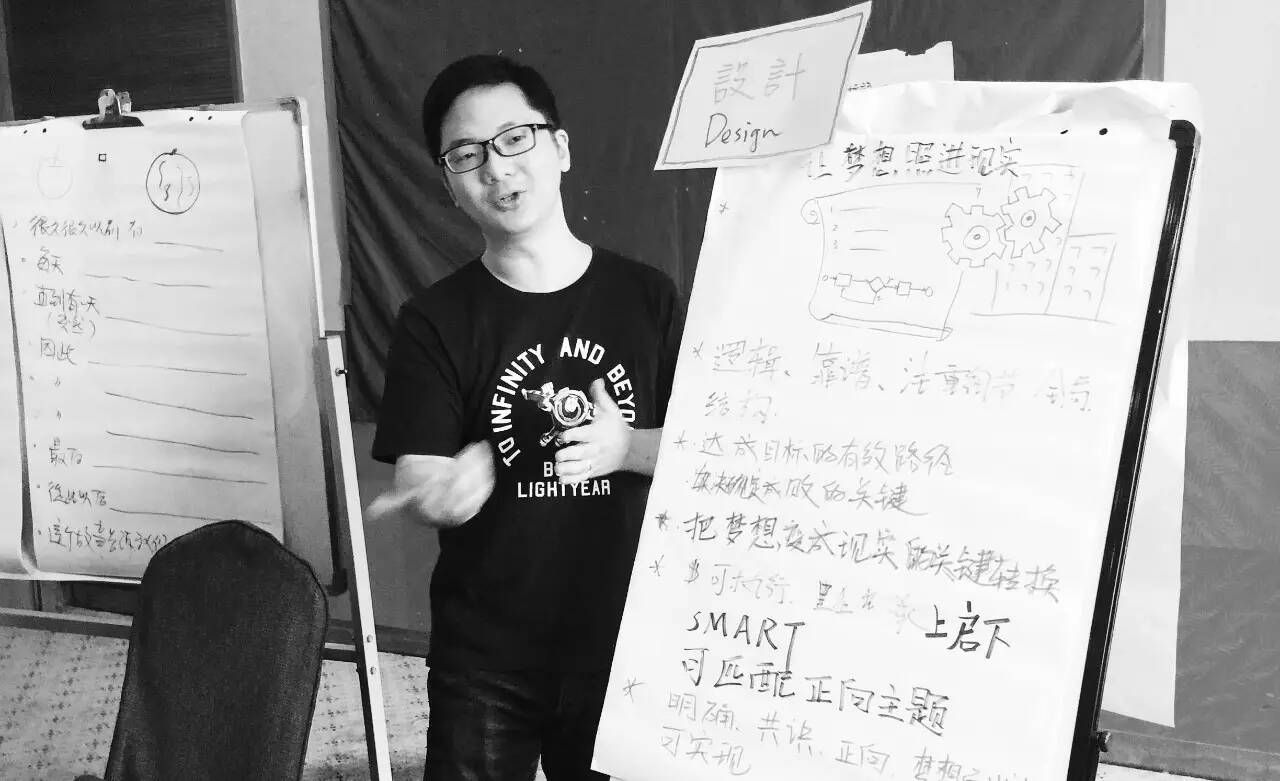 很久很久以前 有
每天
直到有一天
(突然)
因此
〃
〃
最后
从此以后
这个故事告诉我们
TO INFINITY AND BEYO
LIGHTYEAR
設計
Design
让梦想照进现实
1
2
3
* 逻辑、靠谱、注重细节
结构.
* 达成目标的有效路径
成败的关键
* 把梦想变成现实的关键转换
* 可执行.
上启下
SMART
可匹配正向主题
* 明确、共识、正向、梦想
可实现